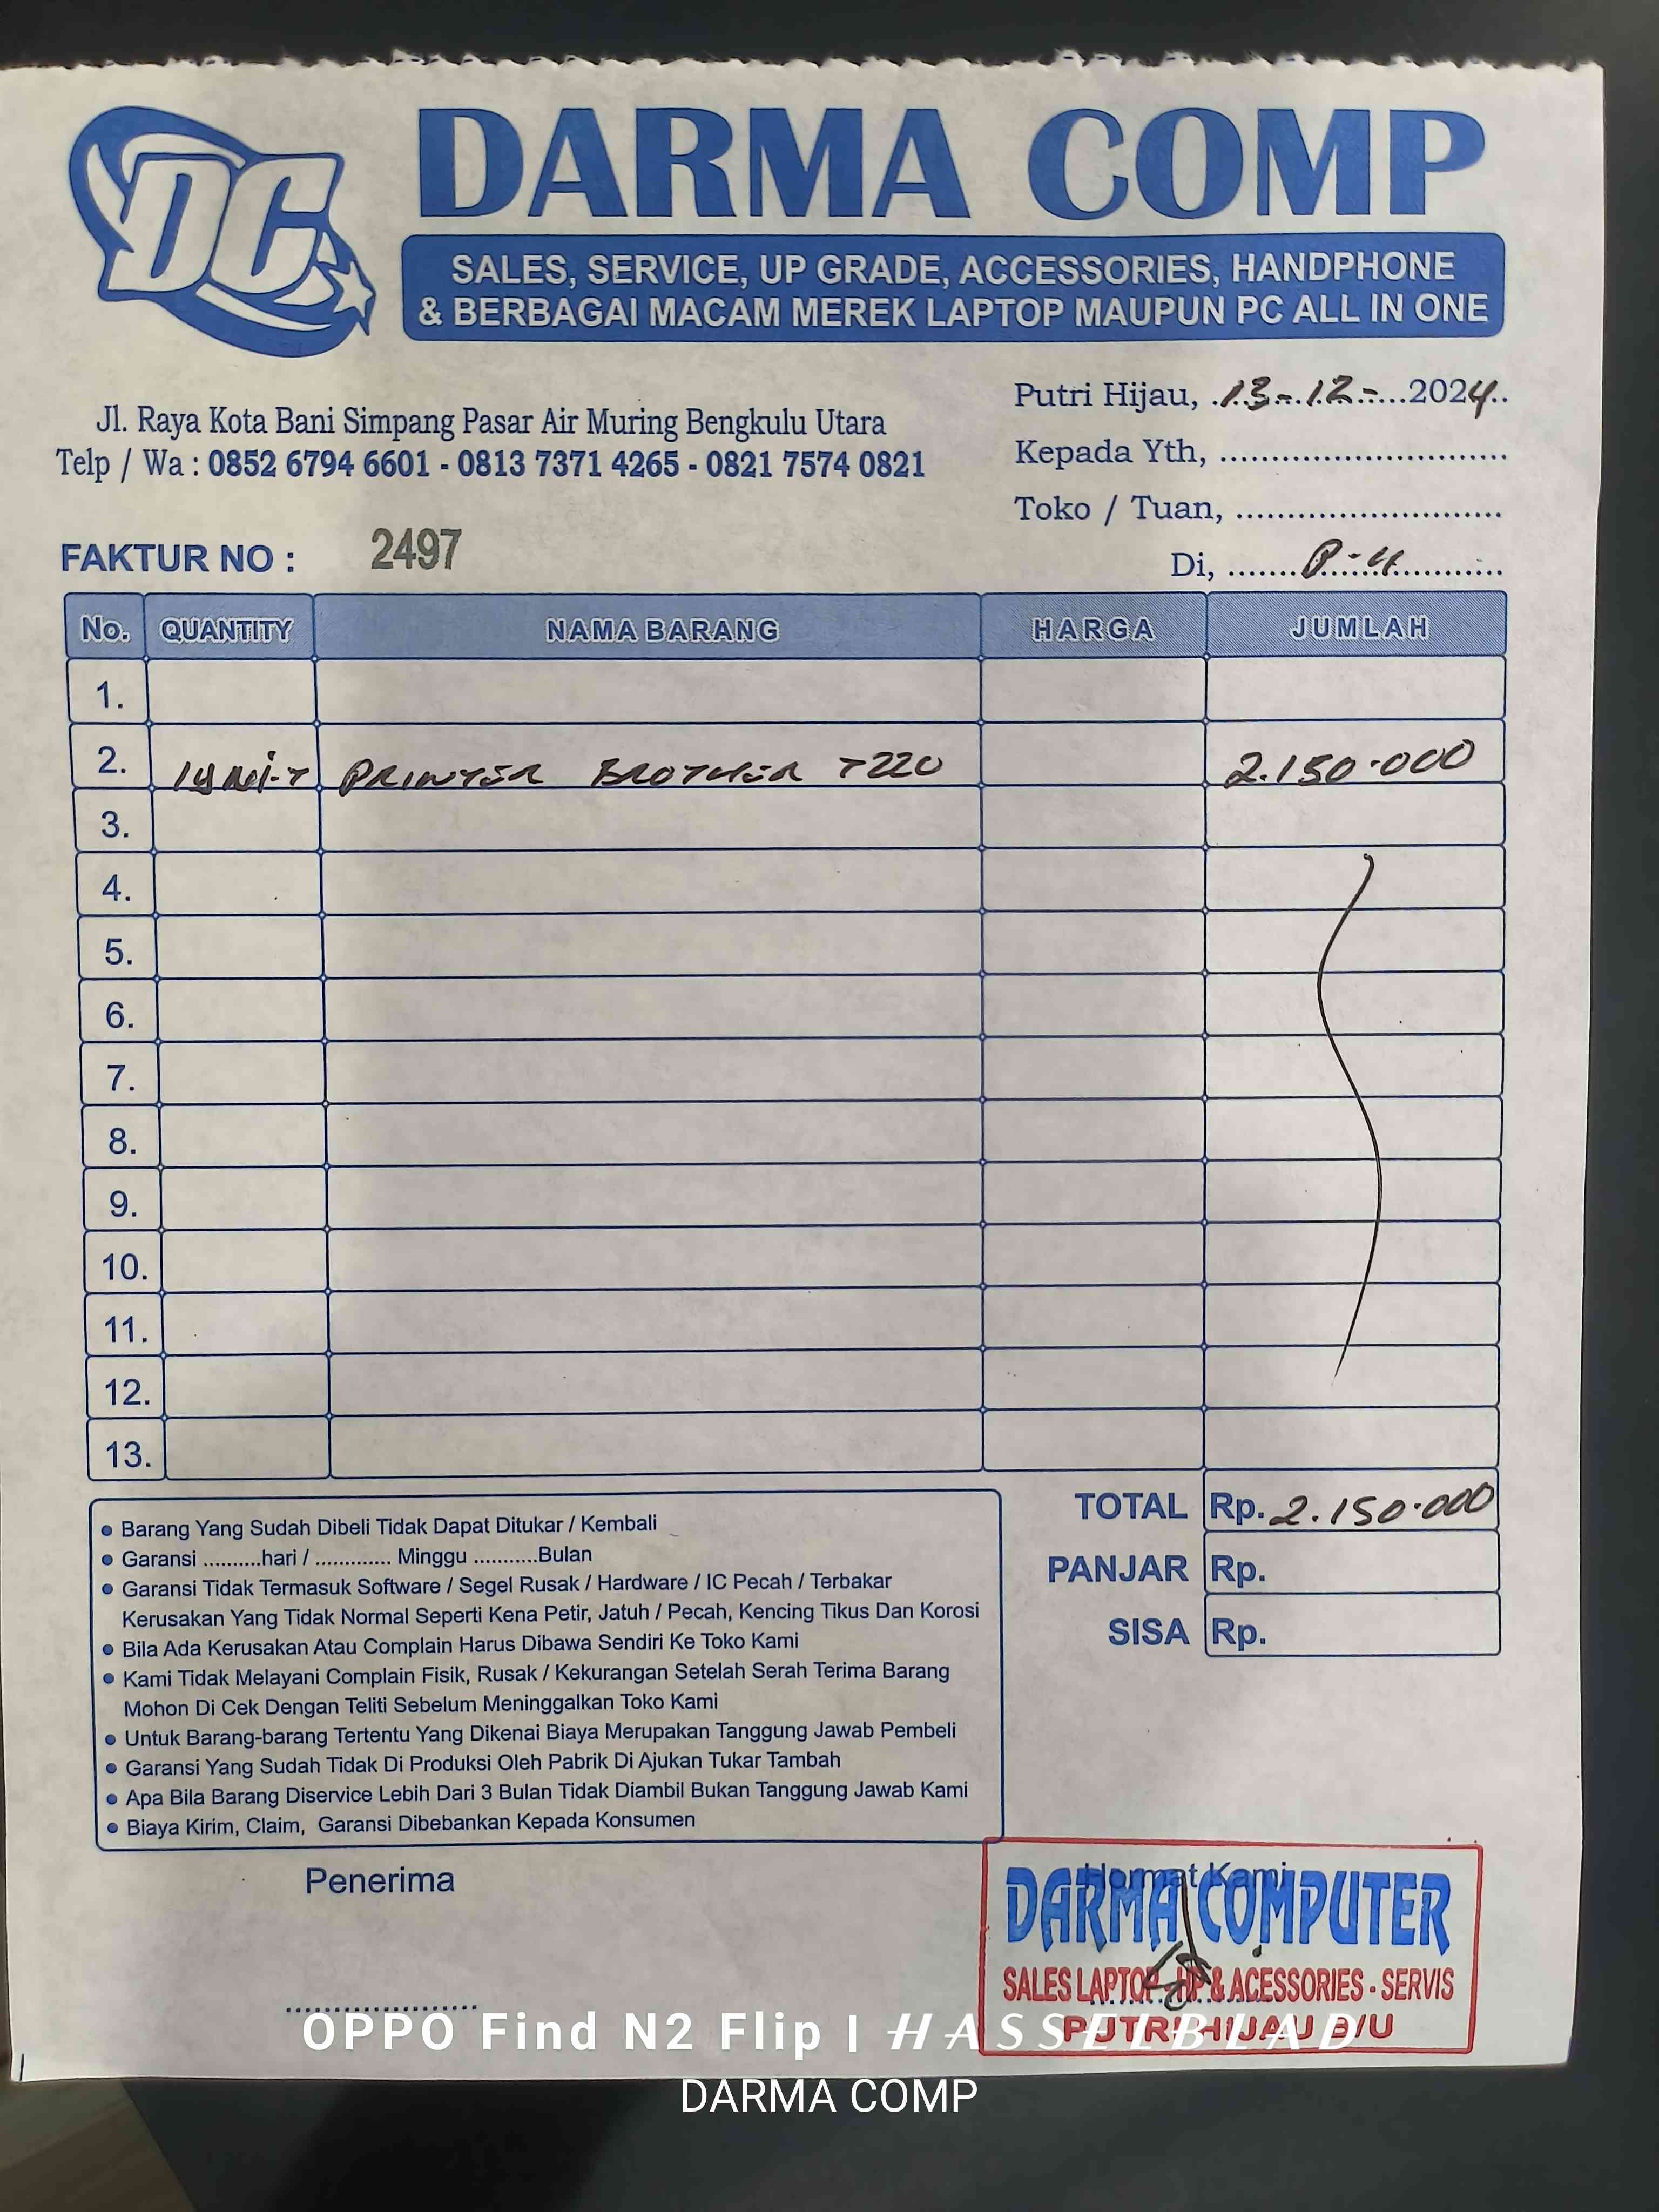 DC
DARMA COMP
SALES, SERVICE, UP GRADE, ACCESSORIES, HANDPHONE
& BERBAGAI MACAM MEREK LAPTOP MAUPUN PC ALL IN ONE
Jl. Raya Kota Bani Simpang Pasar Air Muring Bengkulu Utara
Telp / Wa : 0852 6794 6601 - 0813 7371 4265 - 0821 7574 0821
Putri Hijau, 13-12-2024
Kepada Yth, ............................
Toko / Tuan, ..........................
FAKTUR NO : 2497
Di, .......P-4...........
No. QUANTITY NAMA BARANG HARGA JUMLAH
1.
2. 1 unit PRINTER BROTHER T220 2.150.000
3.
4.
5.
6.
7.
8.
9.
10.
11.
12.
13.
TOTAL Rp. 2.150.000
PANJAR Rp.
SISA Rp.
• Barang Yang Sudah Dibeli Tidak Dapat Ditukar / Kembali
• Garansi ..........hari / ............. Minggu ...........Bulan
• Garansi Tidak Termasuk Software / Segel Rusak / Hardware / IC Pecah / Terbakar
Kerusakan Yang Tidak Normal Seperti Kena Petir, Jatuh / Pecah, Kencing Tikus Dan Korosi
• Bila Ada Kerusakan Atau Complain Harus Dibawa Sendiri Ke Toko Kami
• Kami Tidak Melayani Complain Fisik, Rusak / Kekurangan Setelah Serah Terima Barang
Mohon Di Cek Dengan Teliti Sebelum Meninggalkan Toko Kami
• Untuk Barang-barang Tertentu Yang Dikenai Biaya Merupakan Tanggung Jawab Pembeli
• Garansi Yang Sudah Tidak Di Produksi Oleh Pabrik Di Ajukan Tukar Tambah
• Apa Bila Barang Diservice Lebih Dari 3 Bulan Tidak Diambil Bukan Tanggung Jawab Kami
• Biaya Kirim, Claim, Garansi Dibebankan Kepada Konsumen
Penerima
Hormat Kami
DARMA COMPUTER
SALES LAPTOP - HP & ACESSORIES - SERVIS
PUTRI HIJAU B/U
OPPO Find N2 Flip | HASSELBLAD
DARMA COMP